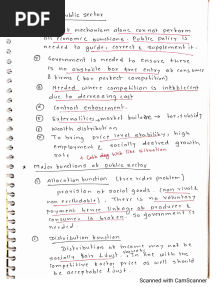 PDF
Public Sector
mechanism alone cannot perform
all economic functions. Public policy is
needed to guide, correct & supplement it.
Government is needed to ensure there
is no
entry as consumer
& firms (for perfect competition)
Needed where competition is inefficient
due to decreasing cost
Contract enforcement.
Externalities, market failure → tax/subsidy
Wealth distribution
To bring price level stability, high
employment & socially desired growth
rate
Major functions of public sector
Allocation function
provision of social goods. (non rival &
non excludable). There is no voluntary
payment hence linkage b/w producer &
consumer is broken. So government is
needed
Distribution function
Distribution of income may not be
socially fair & just,
in line with the
competitive factor price as well should
be acceptable & just
Scanned with CamScanner